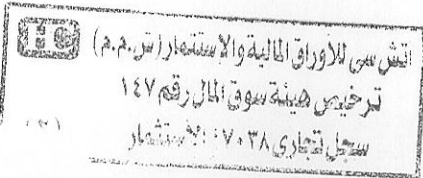 HC
اتش سى للأوراق المالية والاستثمار (ش.م.م)
ترخيص هيئة سوق المال رقم ١٤٧
سجل تجارى ٧٠٣٨ الاستثمار